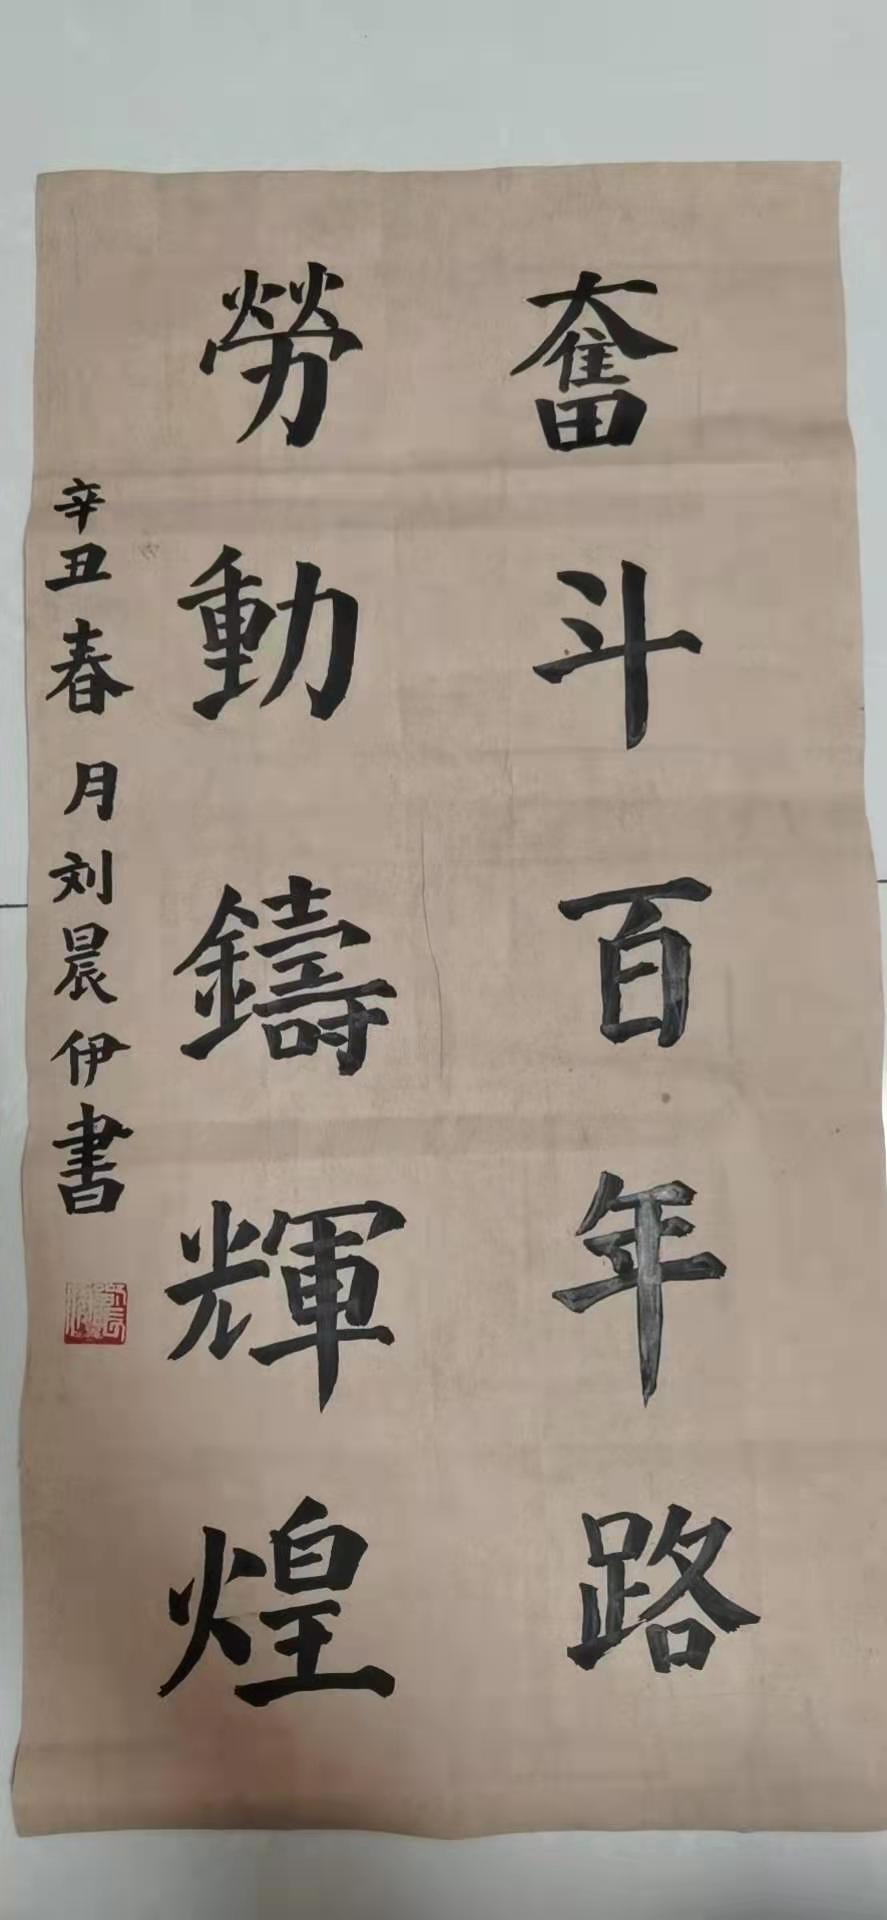 奮斗百年路
勞動鑄輝煌
辛丑春月刘晨伊書